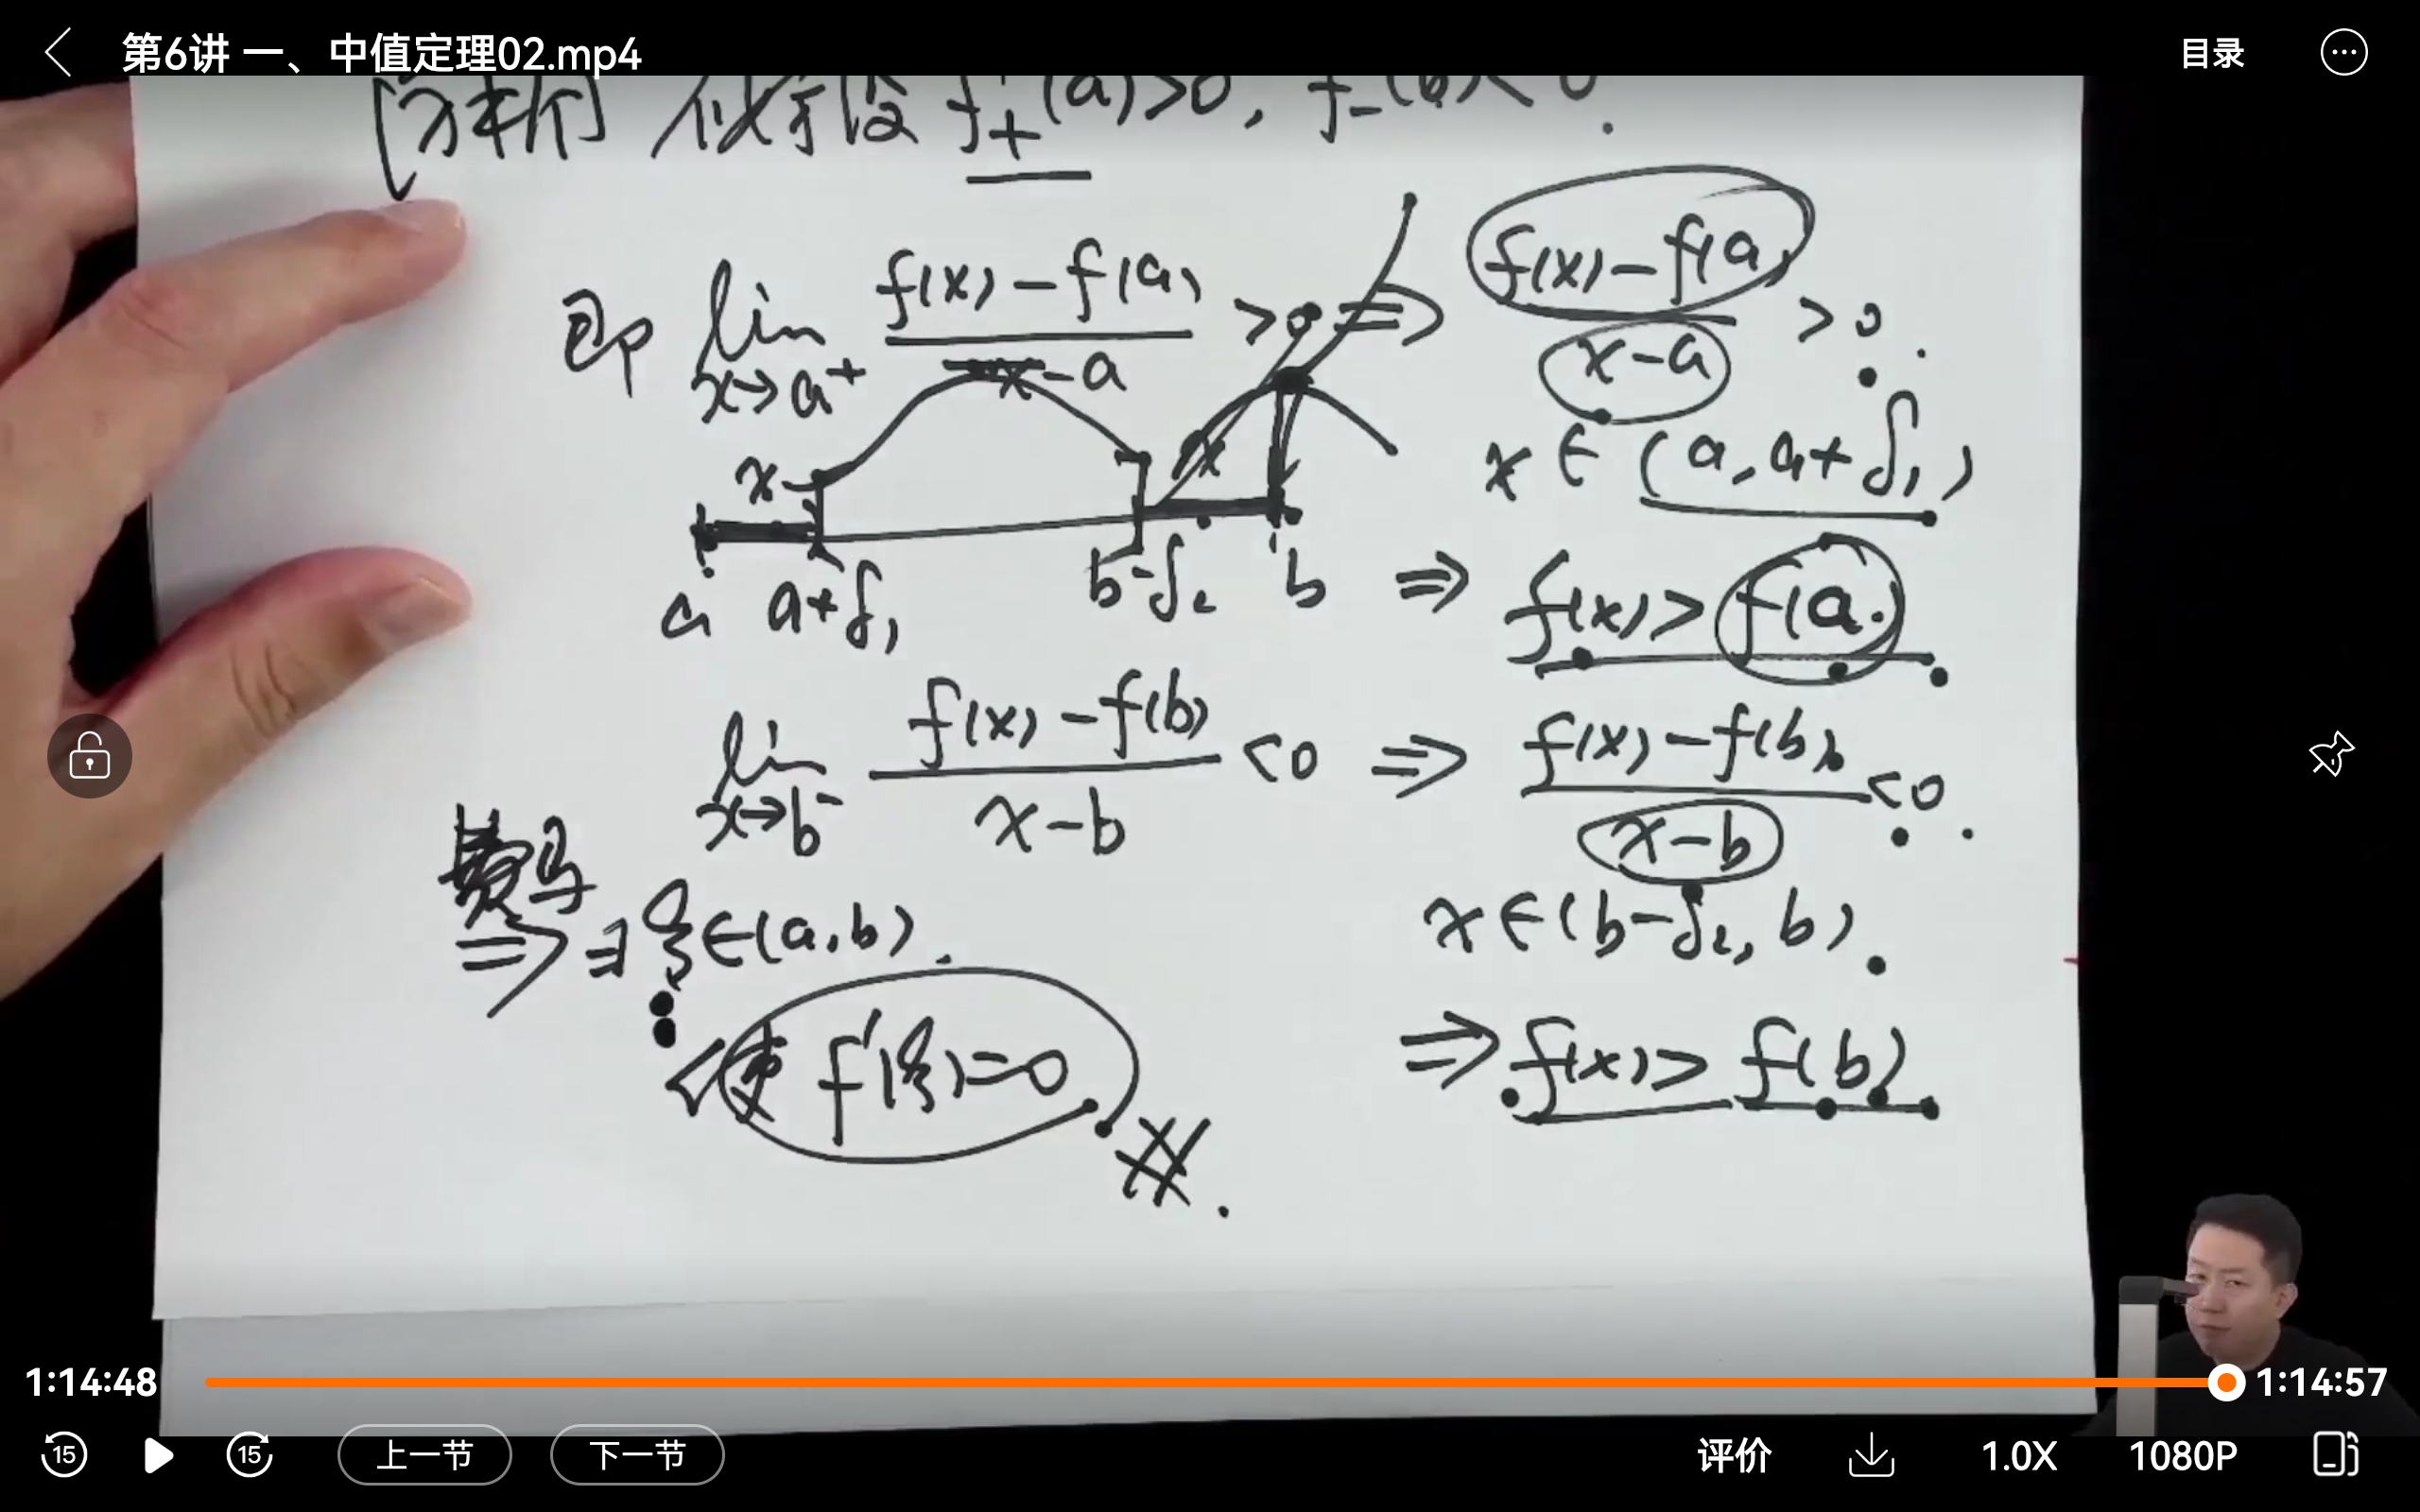 第6讲 一、中值定理02.mp4
目录
[分析] 不妨设 f₊'(a)>0, f₋'(b)<0.
即 lim x→a⁺ (f(x)-f(a))/(x-a) >0 ⇒ (f(x)-f(a))/(x-a) >0.
x∈(a, a+δ₁)
x
x
a a+δ₁ b-δ₂ b
⇒ f(x)>f(a).
lim x→b⁻ (f(x)-f(b))/(x-b) <0 ⇒ (f(x)-f(b))/(x-b) <0.
x∈(b-δ₂, b).
费马
⇒ ∃ξ∈(a,b).
使 f'(ξ)=0 #.
⇒ f(x)> f(b).
1:14:48
1:14:57
15
15
上一节
下一节
评价
1.0X
1080P